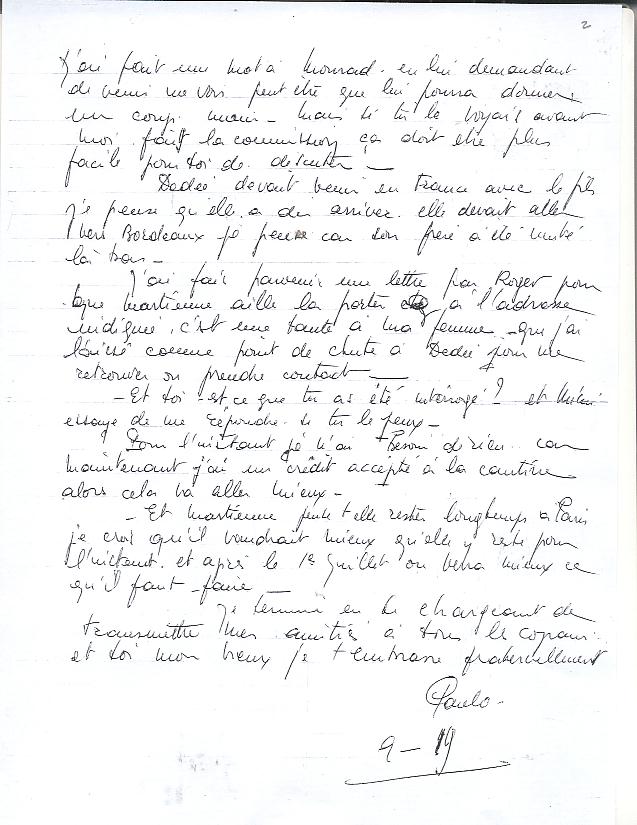 2
J'ai fait un mot à Mourad. en lui demandant
de venir me voir peut être que lui pourra donner
un coup main – mais si tu le voyais avant
moi. fait la commission ça doit etre plus
facile pour toi de. discuter –
Dedée devait venir en France avec le fils
je pense qu'elle a du arriver. elle devait aller
vers Bordeaux je pense car son frere a été muté
là bas –
J'ai fais parvenir une lettre par Roger pour
que Martienne aille la porter à l'adresse
indiqué, c'est une tante à ma femme – que j'ai
laissé comme point de chute à Dedée pour me
retrouver ou prendre contact –
– Et toi – est ce que tu as été interrogé ? et
essaye de me répondre si tu le peux –
Pour l'instant je n'ai Besoin de rien car
maintenant j'ai un crédit accepté à la cantine
alors cela va aller mieux –
– Et Martienne peut t elle rester longtemps a Paris
je crois qu'il vaudrait mieux qu'elle y reste pour
l'instant. et après le 1er Juillet on verra mieux ce
qu'il faut – faire –
Je termine en te chargeant de
transmettre mes amitiés à tous le copains
et toi mon vieux je t'embrasse fraternellement
Paulo.
9 – 19